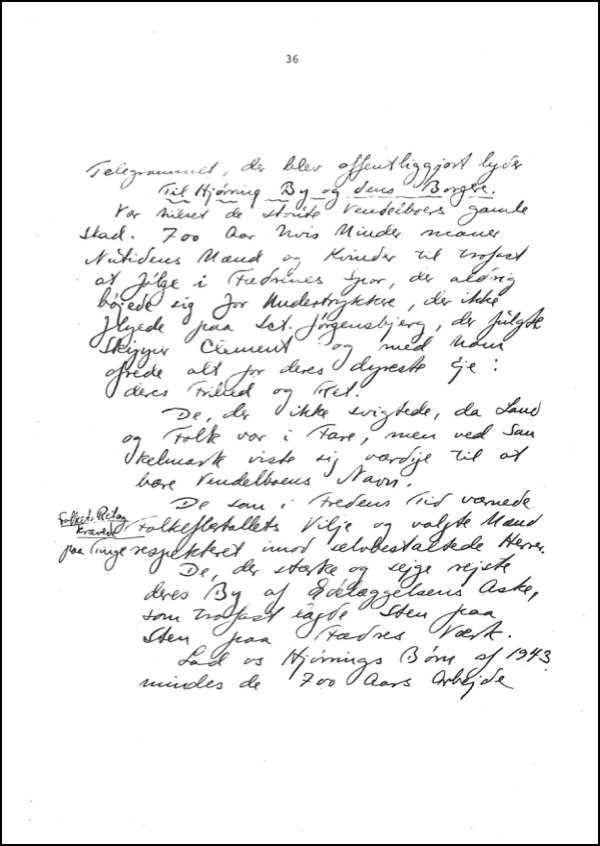 36
Telegrammet, der blev offentliggjort lyder
Til Hjørring By og dens Borgere.
Vær hilset de stoute Vendelboers gamle
Stad. 700 Aar hvis Minder maner
Nutidens Mænd og Kvinder til trofast
at følge i Fædrenes Spor, der aldrig
bøjede sig for Undertrykkere, der ikke
flyede paa Sct. Jørgensbjerg, der fulgte
Skipper Clement og med ham
ofrede alt for deres dyreste Eje:
deres Frihed og Ret.
De, der ikke svigtede, da Land
og Folk var i Fare, men ved San
kelmark viste sig værdige til at
bære Vendelboens Navn.
De som i Fredens Tid værnede
Folkets Ret og
krævede
Folkeflertallets Vilje og valgte Mænd
paa Tinge respekteret imod selvbestaltede Herrer.
De, der stærke og sejge rejste
deres By af Ødelæggelsens Aske,
som trofast lagde Sten paa
Sten paa Fædres Værk.
Lad os Hjørrings Børn af 1943
mindes de 700 Aars Arbejde